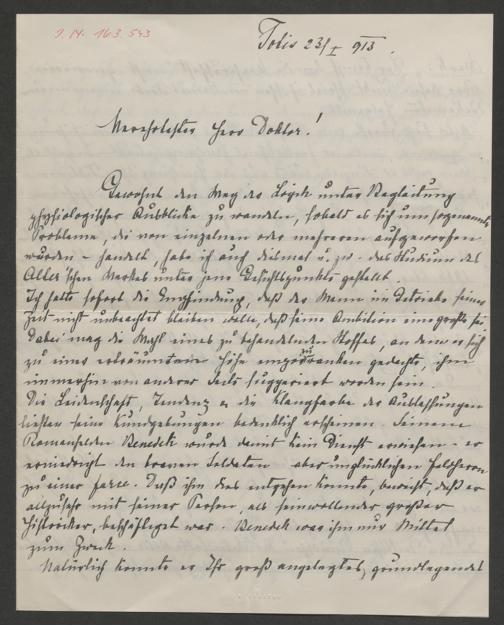 I.N. 163.543
Tolis 23/I 913.
Verehrtester Herr Doktor!
Gewohnt den Weg der Logik unter Begleitung
physiologischer Ausblicke zu wandeln, sobald es sich um sogenannte
Probleme, die von einzelnen oder mehreren aufgeworfen
wurden – handelt, habe ich auch diesmal u. zw. das Studium des
'schen Werkes unter jene Gesichtspunkte gestellt.
Ich hatte sofort die Empfindung, daß der Mann im Getriebe seiner
Zeit nicht unbeachtet bleiben wolle, daß seine Ambition eine große sei.
Dabei mag die Wahl eines zu behandelnden Stoffes, an dem er sich
zu einer erträumten Höhe emporzuranken gedachte, ihm
immerhin von anderer Seite suggeriert worden sein.
Die Leidenschaft, Tendenz u. die Klangfarbe der Auslassungen
ließen seine Kundgebungen bedenklich erscheinen. Seinem
Romanhelden Benedek wurde damit kein Dienst erwiesen – er
erniedrigt den braven Soldaten aber unglücklichen Feldherrn
zu einer Farce. Daß ihm das entgehen konnte, beweist, daß er
allzusehr mit seiner Person, als seinwollender großer
Historiker, beschäftigt war. Benedek war ihm nur Mittel
zum Zweck.
Natürlich konnte er Ihr groß angelegtes, grundlegendes